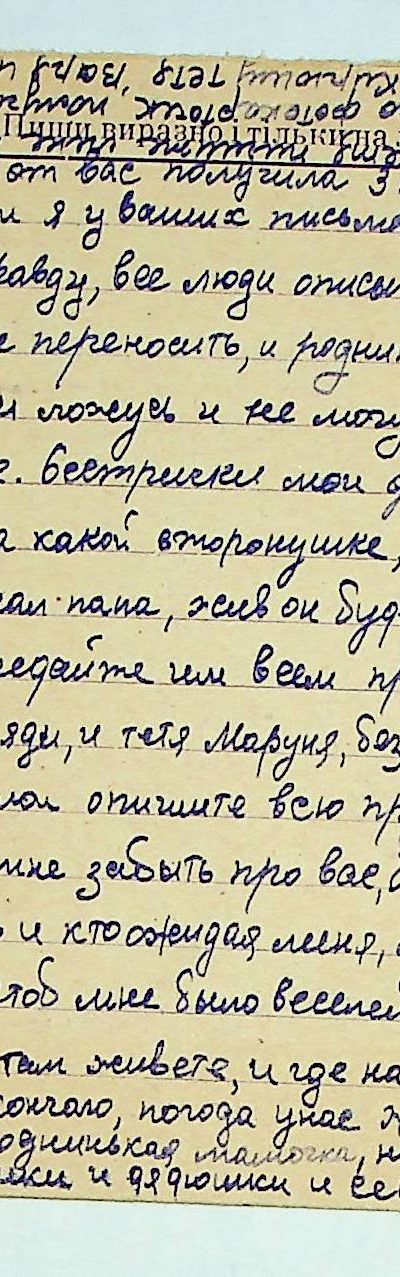 Пиши виразно і тільки на
от вас получила 3
и я у ваших письма
равду, все люди описы
е переносить, и родни
и ложусь и не могу
г. Сестрички мои д
а какой второнушке,
хал папа, жив он буд
едайте им всем пр
яди, и тетя Маруня, без
мои опишите всю пр
мне забыть про вас,
ь и кто ожидая меня,
чтоб мне было веселей
там живете, и где на
кончаю, погода у нас
роднинькая мамочка, н
шки и дядюшки и се